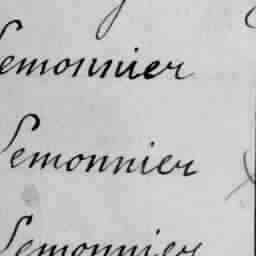 Lemonnier
Lemonnier
Lemonnier